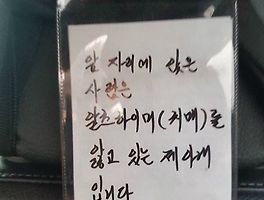 앞 자리에 앉은
사람은
알츠하이머(치매)를
앓고 있는 제아내
입니다